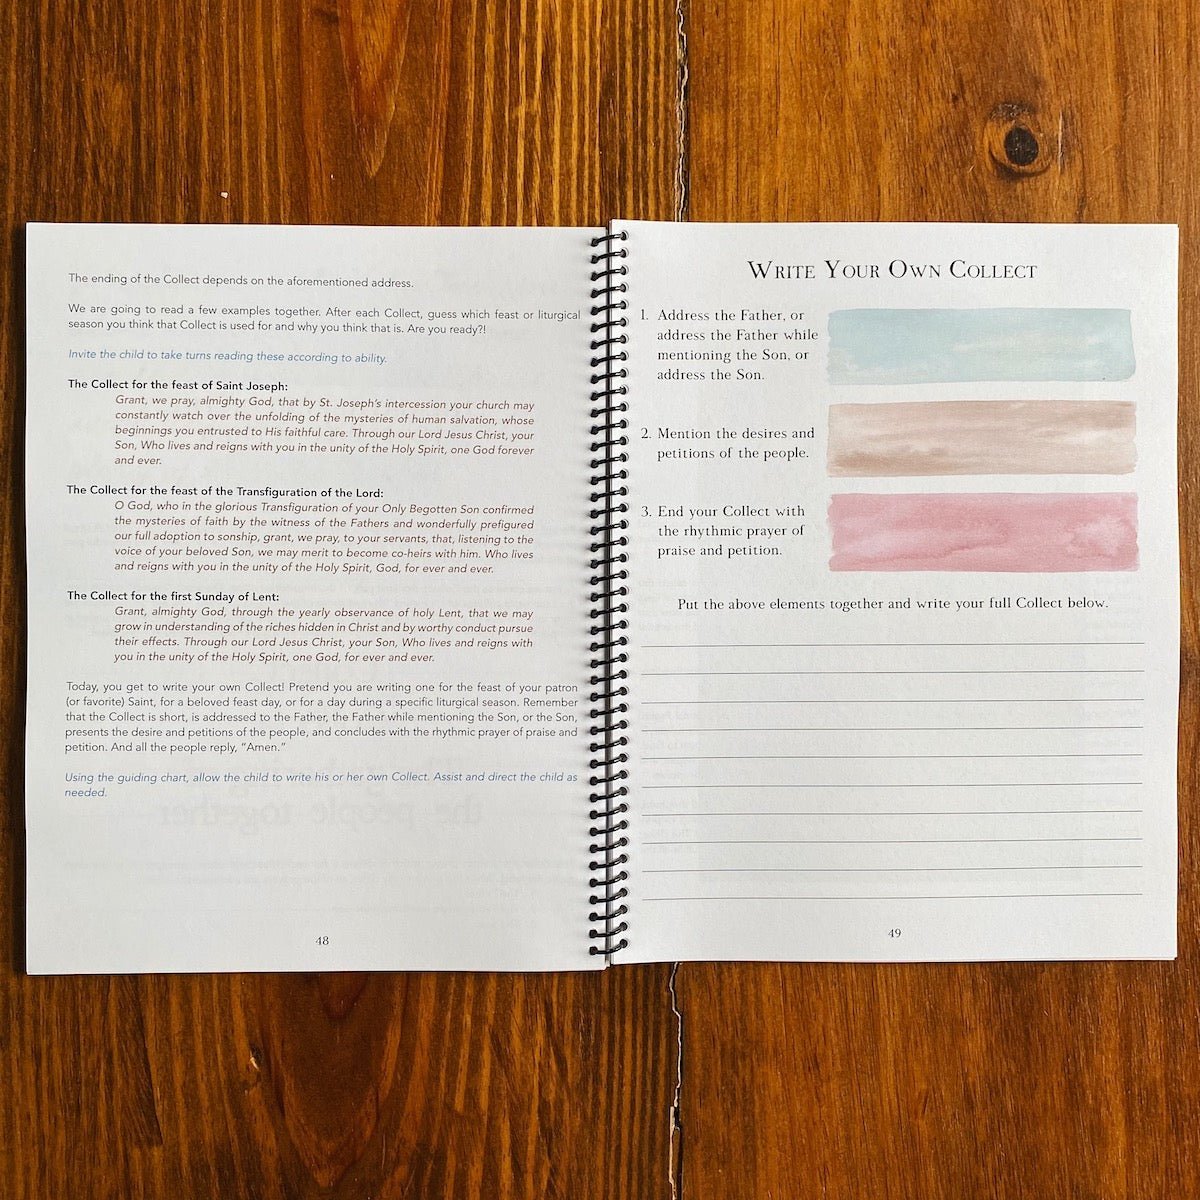 The ending of the Collect depends on the aforementioned address.
We are going to read a few examples together. After each Collect, guess which feast or liturgical
season you think that Collect is used for and why you think that is. Are you ready?!
Invite the child to take turns reading these according to ability.
The Collect for the feast of Saint Joseph:
Grant, we pray, almighty God, that by St. Joseph's intercession your church may
constantly watch over the unfolding of the mysteries of human salvation, whose
beginnings you entrusted to His faithful care. Through our Lord Jesus Christ, your
Son, Who lives and reigns with you in the unity of the Holy Spirit, one God forever
and ever.
The Collect for the feast of the Transfiguration of the Lord:
O God, who in the glorious Transfiguration of your Only Begotten Son confirmed
the mysteries of faith by the witness of the Fathers and wonderfully prefigured
our full adoption to sonship, grant, we pray, to your servants, that, listening to the
voice of your beloved Son, we may merit to become co-heirs with him. Who lives
and reigns with you in the unity of the Holy Spirit, God, for ever and ever.
The Collect for the first Sunday of Lent:
Grant, almighty God, through the yearly observance of holy Lent, that we may
grow in understanding of the riches hidden in Christ and by worthy conduct pursue
their effects. Through our Lord Jesus Christ, your Son, Who lives and reigns with
you in the unity of the Holy Spirit, one God, for ever and ever.
Today, you get to write your own Collect! Pretend you are writing one for the feast of your patron
(or favorite) Saint, for a beloved feast day, or for a day during a specific liturgical season. Remember
that the Collect is short, is addressed to the Father, the Father while mentioning the Son, or the Son,
presents the desire and petitions of the people, and concludes with the rhythmic prayer of praise and
petition. And all the people reply, "Amen."
Using the guiding chart, allow the child to write his or her own Collect. Assist and direct the child as
needed.
48
Write Your Own Collect
1. Address the Father, or
address the Father while
mentioning the Son, or
address the Son.
2. Mention the desires and
petitions of the people.
3. End your Collect with
the rhythmic prayer of
praise and petition.
Put the above elements together and write your full Collect below.
49